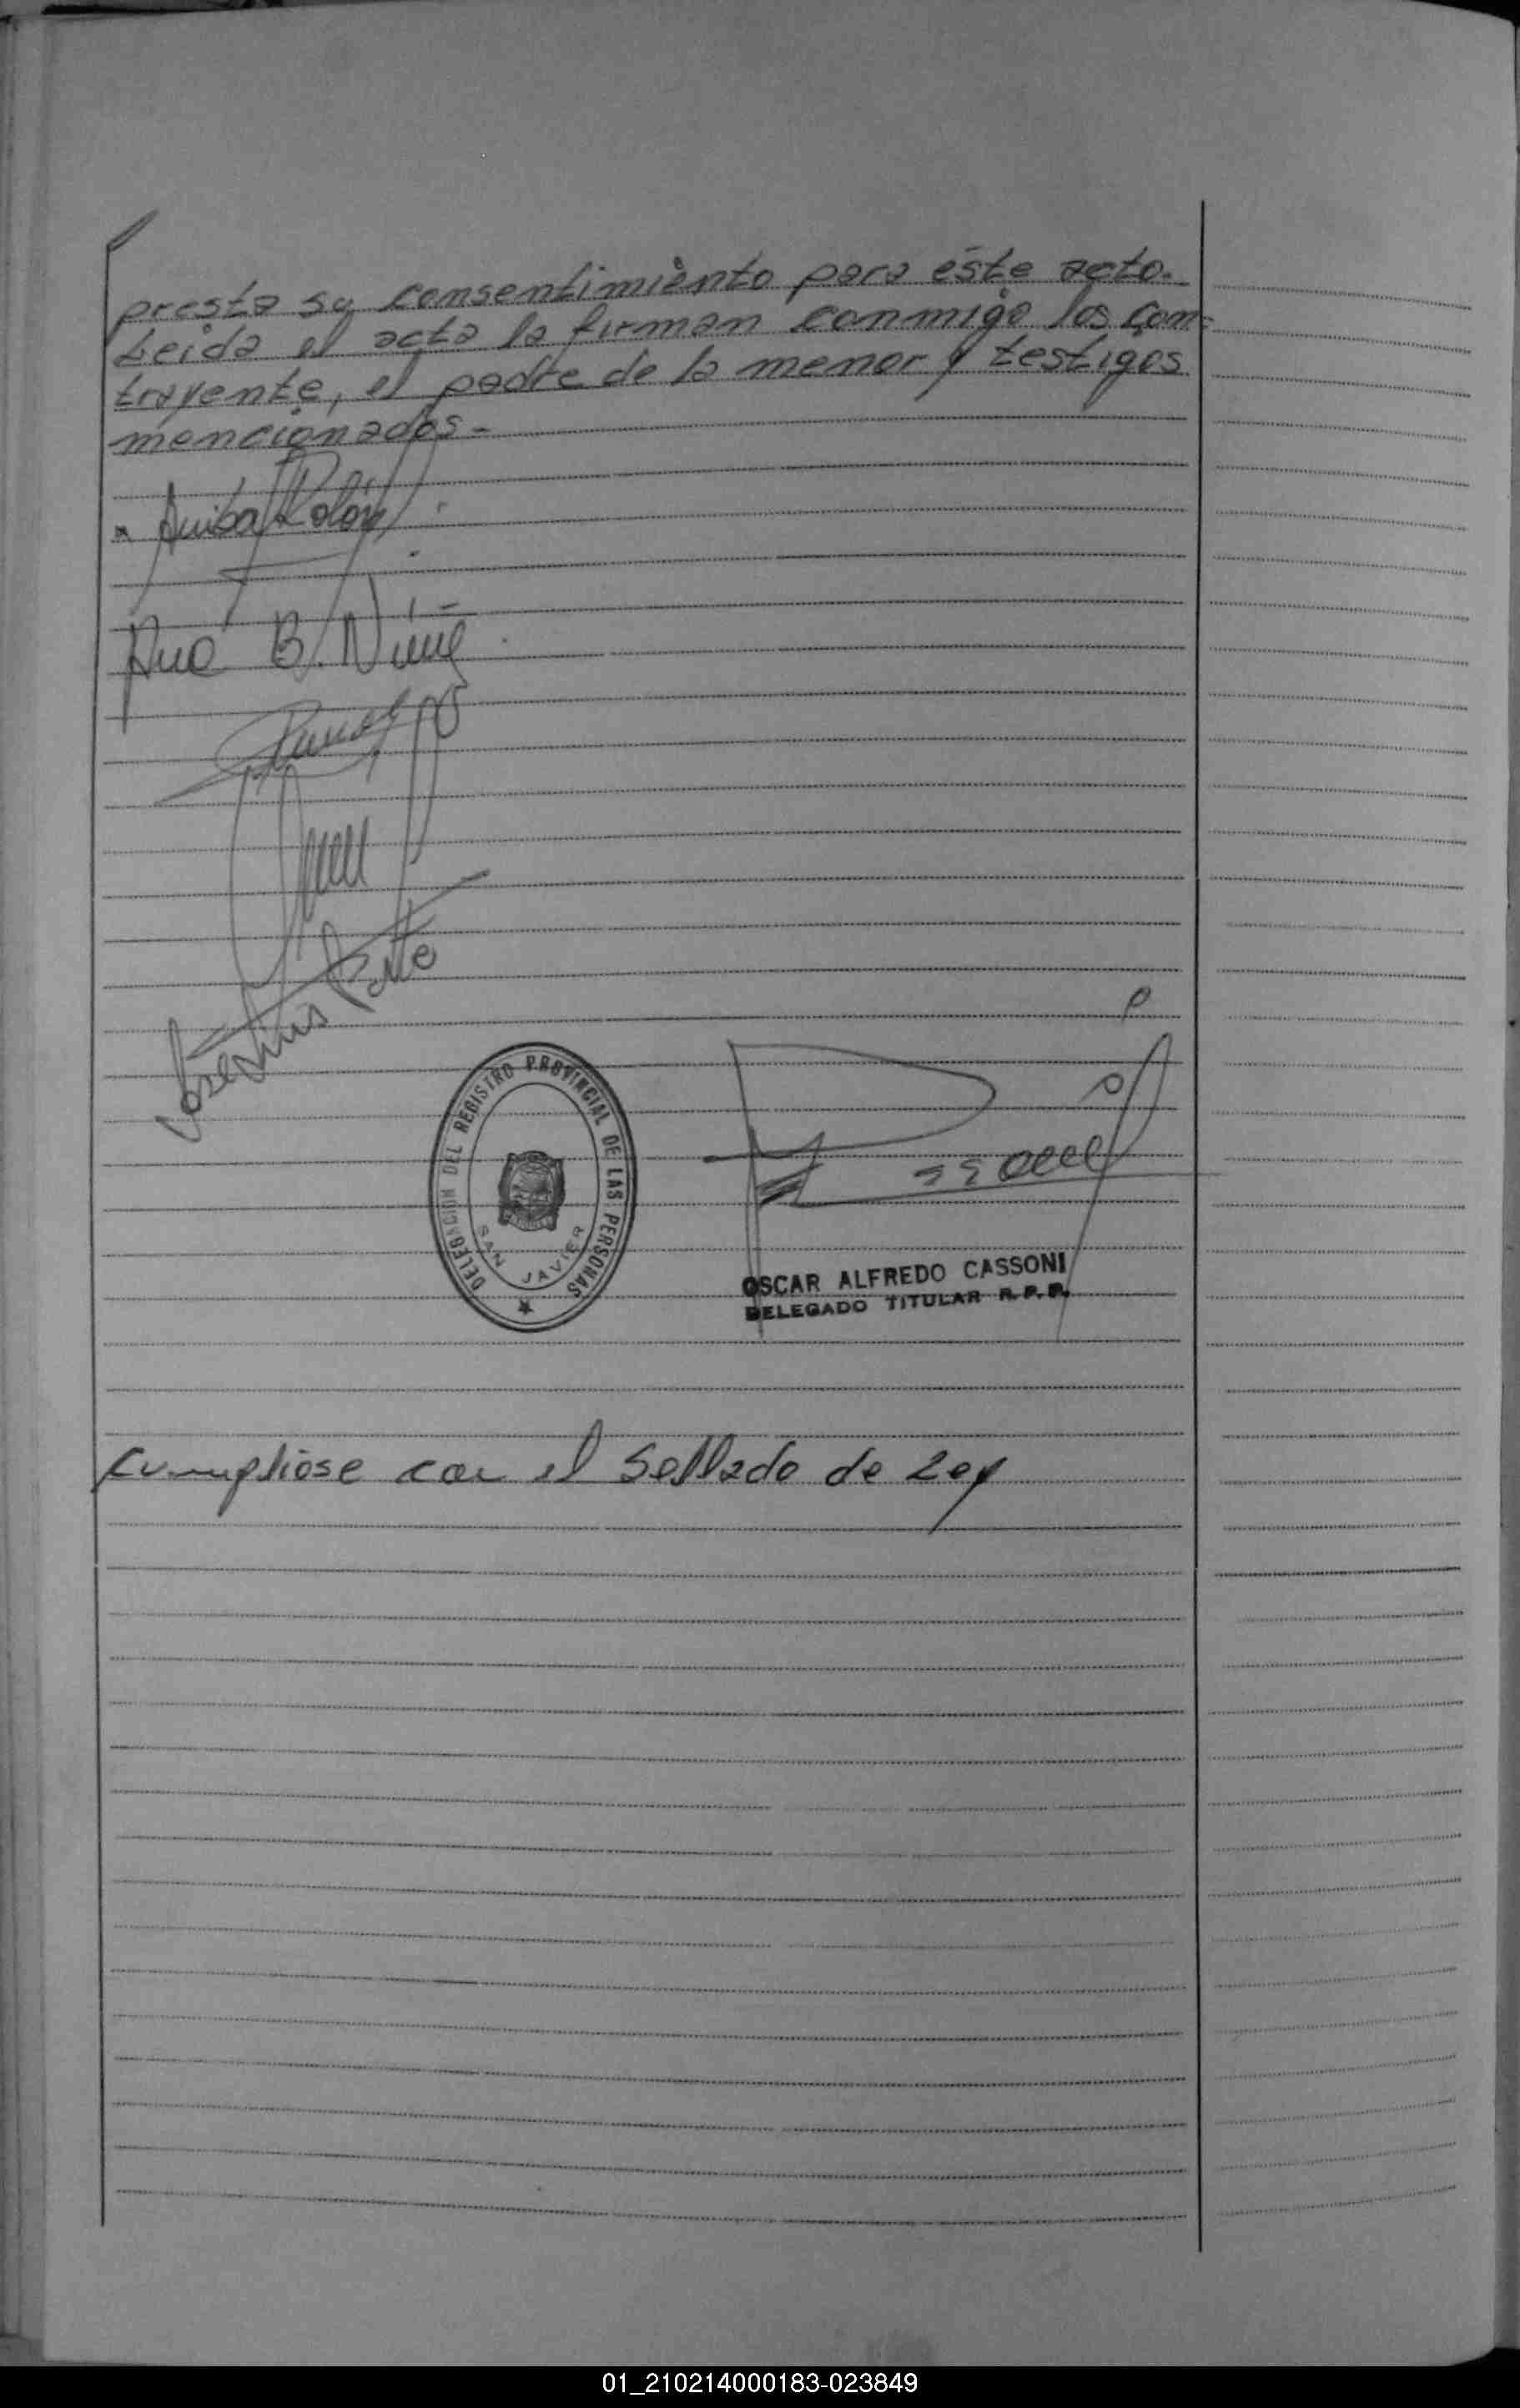 presta su consentimiento para éste acto.-
Leida el acta la firman conmigo los con-
trayente, el padre de la menor y testigos
mencionados.-
Anibal Rolón
Ana B. Nuñe
DELEGACION DEL REGISTRO PROVINCIAL DE LAS PERSONAS
SAN JAVIER
OSCAR ALFREDO CASSONI
DELEGADO TITULAR R.P.P.
Cumpliose con el Sellado de Ley
01_210214000183-023849